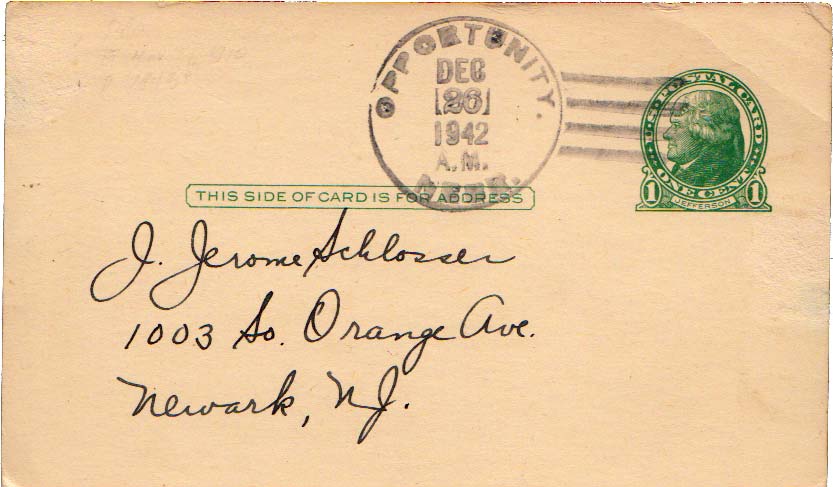 OPPORTUNITY.
DEC
26
1942
A.M.
NEBR.
U.S. POSTAL CARD
1 ONE CENT 1
JEFFERSON
THIS SIDE OF CARD IS FOR ADDRESS
J. Jerome Schlosser
1003 So. Orange Ave.
Newark, NJ.